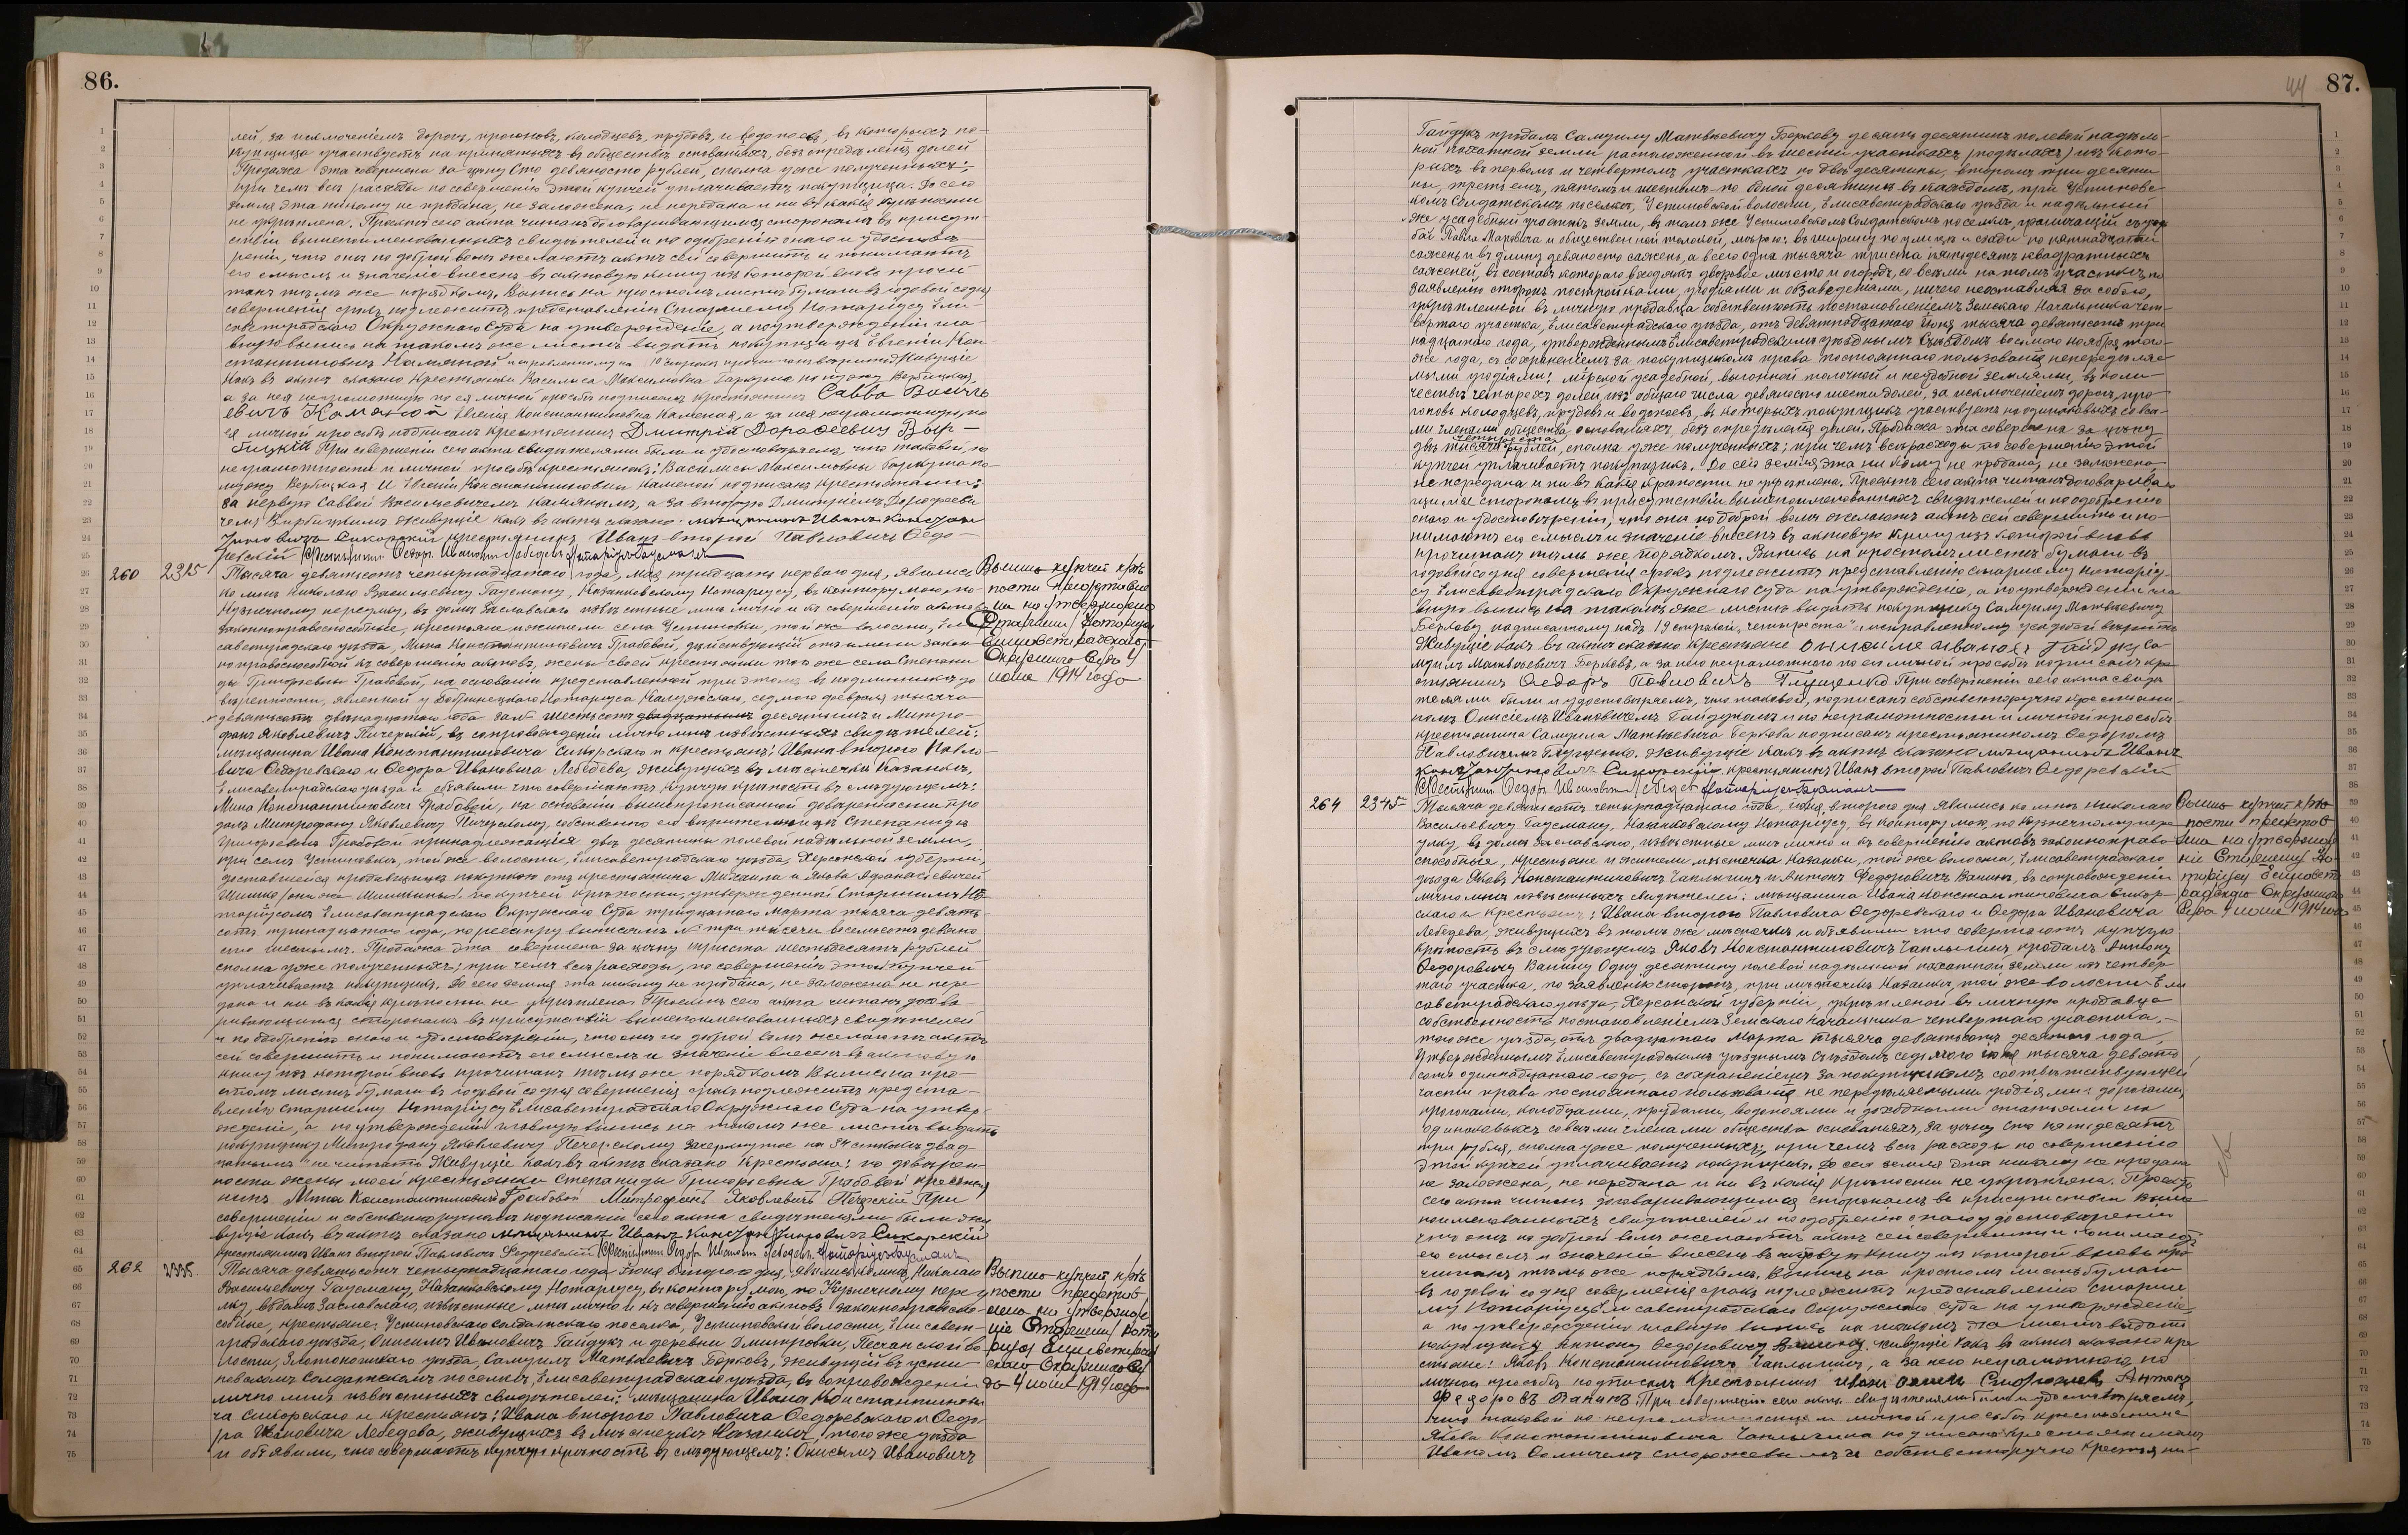 86.
лей, за исключеніемъ дорогъ, прогоновъ, колодцевъ, прудовъ и водопоевъ, въ которыхъ по-
купщица участвуетъ на принятыхъ въ обществѣ основаніяхъ, безъ опредѣленія долей
Продажа эта совершена за цѣну сто девяносто рублей, сполна уже полученныхъ;
при чемъ всѣ расходы по совершенію этой купчей уплачиваетъ покупщица. До сего
земля эта никому не продана, не заложена, не передана и ни въ какія крѣпости
не укрѣплена. Проектъ сего акта читанъ договаривающимся сторонамъ въ присут-
ствіи вышепоименованныхъ свидѣтелей и по одобреніи онаго и удостовѣ-
реніи, что они по доброй волѣ желаютъ актъ сей совершить и понимаютъ
его смыслъ и значеніе внесенъ въ актовую книгу изъ которой вновь прочи-
танъ тѣмъ же порядкомъ. Выпись на простомъ листѣ бумаги въ годовой содня
совершенія срокъ подлежитъ представленію Старшему Нотаріусу Ели-
саветградскаго Окружнаго Суда на утвержденіе, а по утвержденіи гла-
вную выпись на такомъ же листѣ выдать покупщицѣ Евгеніи Кон-
стантиновнѣ Каменой
какъ въ актѣ сказано Крестьянки Василиса Максимовна Гаркуша по мужу Вербицкая,
а за нея неграмотную по ея личной просьбѣ подписалъ крестьянинъ Савва Василь
евичъ Камяной Евгенія Константиновна Каменая, а за нея неграмотную, по
ея личной просьбѣ подписалъ крестьянинъ Дмитрій Дорофеевичъ Вѣр-
бицкій При совершеніи сего акта свидѣтелями были и удостовѣряемъ, что таковой, по
неграмотности и личной просьбѣ крестьянокъ: Василисы Максимовны Гаркуша по
мужу Вербицкая и Евгеніи Константиновны Каменой подписанъ крестьянами:
за первую Саввой Васильевичемъ Камянымъ, а за вторую Дмитріемъ Дорофееви
чемъ Вирбицкимъ Живущіе какъ въ актѣ сказано: мѣщанинъ Иванъ Констан
тиновичъ Сикорскій крестьянинъ Иванъ второй Павловичъ Федо-
ревскій Крестьянинъ Федоръ Ивановичъ Лебедевъ Нотаріусъ Гаусманъ
260 2315 Тысяча девятьсотъ четырнадцатаго года, мая тридцать перваго дня, явились
ко мнѣ Николаю Васильевичу Гаусману, Казанковскому Нотаріусу, въ контору мою, по
Кузнечному переулку, въ домѣ Заславскаго извѣстные мнѣ лично и къ совершенію актовъ
законноправоспособные, крестьяне и жители села Устиновки, той же волости, Ели
саветградскаго уѣзда, Мина Константиновичъ Грабовой, дѣйствующій отъ имени закон
ноправоспособной къ совершенію актовъ, жены своей крестьянки того же села Степани
ды Григорьевны Грабовой, на основаніи представленной при этомъ въ подлинникѣ до
вѣренности, явленной у Бобринецкаго Нотаріуса Калужскаго, седьмого февраля тысяча
девятьсотъ двѣнадцатаго года за № шестьсотъ двадцатымъ десятымъ и Митро-
фанъ Яковлевичъ Пичерскій, въ сопровожденіи лично мнѣ извѣстныхъ свидѣтелей:
мѣщанина Ивана Константиновича Сикорскаго и крестьянъ: Ивана второго Павло-
вича Федоревскаго и Федора Ивановича Лебедева, живущихъ въ мѣстечкѣ Казанкѣ,
Елисаветградскаго уѣзда и объявили что совершаютъ купчую крѣпость въ слѣдующемъ:
Мина Константиновичъ Грабовой, на основаніи вышепрописанной довѣренности про
далъ Митрофану Яковлевичу Пичерскому, собственно его вѣрительницѣ Степанидѣ
Григорьевнѣ Грабовой принадлежащія двѣ десятины полевой надѣльной земли,
при селѣ Устиновкѣ, той же волости, Елисаветградскаго уѣзда, Херсонской губерніи,
доставшейся продавщицѣ покупкою отъ крестьянина Михаила и Якова Афанасіевичей
Шишко по купчей крѣпости, утвержденной Старшимъ Но
таріусомъ Елисаветградскаго Окружнаго Суда тридцатаго Марта тысяча девять
сотъ тринадцатаго года, по реестру выписемъ № три тысячи восемьсотъ девяно
сто шестымъ. Продажа эта совершена за цѣну триста шестьдесятъ рублей
сполна уже полученныхъ; при чемъ всѣ расходы, по совершенію этой купчей
уплачиваетъ покупщикъ. До сего земля эта никому не продана, не заложена не пере
дана и ни въ какія крѣпости не укрѣплена. Проектъ сего акта читанъ догова-
ривающимся сторонамъ въ присутствіи вышепоименованныхъ свидѣтелей
и по одобреніи онаго и удостовѣреніи, что они по доброй волѣ желаютъ актъ
сей совершить и понимаютъ его смыслъ и значеніе внесенъ въ актовую
книгу изъ которой вновь прочитанъ тѣмъ же порядкомъ Выпись на про-
стомъ листѣ бумаги въ годовой содня совершенія срокъ подлежитъ предста-
вленію Старшему Нотаріусу Елисаветградскаго Окружнаго Суда на утвер-
жденіе, а по утвержденіи главную выпись на такомъ же листѣ выдать
покупщику Митрофану Яковлевичу Печерскому Зачеркнутое на 34 строкѣ двад
цатымъ" не читать Живущіе какъ въ актѣ сказано Крестьяне: по довѣрен-
ности жены моей крестьянки Степаниды Григорьевны Грабовой крестья
нинъ Мина Константиновичъ Грабовой Митрофанъ Яковлевичъ Печерскій При
совершеніи и собственноручномъ подписаніи сего акта свидѣтелями были жи
вущіе какъ въ актѣ сказано мѣщанинъ Иванъ Константиновичъ Сикорскій
крестьянинъ Иванъ второй Павловичъ Федоревскій Крестьянинъ Федоръ Ивановичъ Лебедевъ. Нотаріусъ Гаусманъ
Выпись купчей крѣ
пости представле
на на утвержденіе
Старшему Нотаріусу
Елисаветградскаго
Окружнаго Суда 4
іюня 1914 года
262 2335. Тысяча девятьсотъ четырнадцатаго года Іюня второго дня, явились ко мнѣ, Николаю
Васильевичу Гаусману, Казанковскому Нотаріусу, въ контору мою, по Кузнечному пере
улку, въ домѣ Заславскаго, извѣстные мнѣ лично и къ совершенію актовъ законноправоспо-
собные, крестьяне: Устиновскаго Солдатскаго поселка, Устиновской волости, Елисавет-
градскаго уѣзда, Онисимъ Ивановичъ Гайдукъ и деревни Дмитровки, Песчанской во
лости, Золотоношскаго уѣзда, Самуилъ Матвѣевичъ Берковъ, живущій въ Усти
новскомъ Солдатскомъ поселкѣ, Елисаветградскаго уѣзда, въ сопровожденіи
лично мнѣ извѣстныхъ свидѣтелей: мѣщанина Ивана Константинови
ча Сикорскаго и крестьянъ: Ивана второго Павловича Федоревскаго и Федо
ра Ивановича Лебедева, живущихъ въ мѣстечкѣ Казанкѣ, того же уѣзда
и объявили, что совершаютъ купчую крѣпость въ слѣдующемъ: Онисимъ Ивановичъ
Выпись купчей крѣ
пости представ
лена на утвержде
ніе Старшему Нота
ріусу Елисаветград
скаго Окружнаго Су
да 4 іюня 1914 года
44 87.
Гайдукъ продалъ Самуилу Матвѣевичу Беркову десять десятинъ полевой надѣль-
ной пахатной земли расположенной въ шести участкахъ (подѣлахъ) изъ кото-
рыхъ въ первомъ и четвертомъ участкахъ по двѣ десятины, второмъ три десяти
ны, третьемъ, пятомъ и шестомъ по одной десятинѣ въ каждомъ, при Устиновс-
комъ Солдатскомъ поселкѣ, Устиновской волости, Елисаветградскаго уѣзда и надѣльный
же усадебный участокъ земли, въ томъ же Устиновскомъ Солдатскомъ поселкѣ, граничащій съ
Павла Марковича и общественной толокой, мѣрою: въ ширину по улицѣ и сзади по пятнадцати
сажень и въ длину девяносто сажень, а всего одна тысяча триста пятьдесятъ квадратныхъ
саженей, въ составъ котораго входятъ дворовое мѣсто и огородъ, со всѣми на томъ участкѣ, по
заявленію сторонъ постройками, угодіями и обзаведеніями, ничего не оставляя за собою,
укрѣпленной въ личную продавца собственность постановленіемъ Земскаго Начальника чет-
вертаго участка, Елисаветградскаго уѣзда, отъ девятнадцатаго Іюня тысяча девятьсотъ три
надцатаго года, утвержденнымъ Елисаветградскимъ уѣзднымъ Съѣздомъ восьмого ноября того
же года, съ сохраненіемъ за покупщикомъ права постояннаго пользованія непередѣляе-
мыми угодіями: мірской усадебной, выгонной толочной и неудобной землями, въ коли
чествѣ четырехъ долей изъ общаго числа девяносто шести долей, за исключеніемъ дорогъ, про
гоновъ колодцевъ, прудовъ и водопоевъ, въ которыхъ покупщикъ участвуетъ на одинаковыхъ со всѣ-
ми членами общества основаніяхъ, безъ опредѣленія долей. Продажа эта совершена за цѣну
двѣ тысячи четыреста рублей, сполна уже полученныхъ; при чемъ всѣ расходы по совершенію этой
купчей уплачиваетъ покупщикъ. До сего земля эта никому не продана, не заложена
не передана и ни въ какія крѣпости не укрѣплена. Проектъ сего акта читанъ договариваю
щимся сторонамъ въ присутствіи вышепоименованныхъ свидѣтелей и по одобреніи
онаго и удостовѣреніи, что они по доброй волѣ желаютъ актъ сей совершить и по-
нимаютъ его смыслъ и значеніе внесенъ въ актовую книгу изъ которой вновь
прочитанъ тѣмъ же порядкомъ. Выпись на простомъ листѣ бумаги въ
годовой содня совершенія срокъ подлежитъ представленію Старшему Нотаріу-
су Елисаветградскаго Окружнаго Суда на утвержденіе, а по утвержденіи гла
вную выпись на такомъ же листѣ выдать покупщику Самуилу Матвѣевичу
Беркову надписанному надъ 19 строкой "четыреста" исправленному
Живущіе какъ въ актѣ сказано крестьяне Онисимъ Ивановъ Гайдукъ Са
муилъ Матвѣевичъ Берковъ, а за него неграмотнаго по его личной просьбѣ подписалъ кре
стьянинъ Федоръ Павловичъ Глущенко При совершеніи сего акта свидѣ
телями были и удостовѣряемъ, что таковой, подписанъ собственноручно крестьяни-
номъ Онисіемъ Ивановичемъ Гайдукомъ и по неграмотности и личной просьбѣ
крестьянина Самуила Матвѣевича Беркова подписанъ крестьяниномъ Федоромъ
Павловичемъ Глущенко. Живущіе какъ въ актѣ сказано мѣщанинъ Иванъ
Константиновичъ Сикорскій крестьянинъ Иванъ второй Павловичъ Федоревскій
Крестьянинъ Федоръ Ивановичъ Лебедевъ Нотаріусъ Гаусманъ
264 2345 Тысяча девятьсотъ четырнадцатаго года, іюня, второго дня явились ко мнѣ Николаю
Васильевичу Гаусману, Казанковскому Нотаріусу, въ контору мою, по Кузнечному пере
улку, въ домѣ Заславскаго, извѣстные мнѣ лично и къ совершенію актовъ законноправо
способные, крестьяне и жители мѣстечка Казанки, той же волости, Елисаветградскаго
уѣзда Яковъ Константиновичъ Чаплыгинъ и Антонъ Федоровичъ Ванинъ, въ сопровожденіи
лично мнѣ извѣстныхъ свидѣтелей: мѣщанина Ивана Константиновича Сикор-
скаго и крестьянъ: Ивана второго Павловича Федоревскаго и Федора Ивановича
Лебедева, живущихъ въ томъ же мѣстечкѣ и объявили что совершаютъ купчую
крѣпость въ слѣдующемъ Яковъ Константиновичъ Чаплыгинъ продалъ Антону
Федоровичу Ванину Одну десятину полевой надѣльной пахатной земли изъ четвер
таго участка, по заявленію сторонъ, при мѣстечкѣ Казанкѣ, той же волости Ели
саветградскаго уѣзда, Херсонской губерніи, укрѣпленой въ личную продавца
собственность постановленіемъ Земскаго Начальника четвертаго участка,
того же уѣзда, отъ двадцатаго Марта тысяча девятьсотъ десятаго года,
утвержденнымъ Елисаветградскимъ уѣзднымъ Съѣздомъ седьмого іюня тысяча девять
сотъ одиннадцатаго года, съ сохраненіемъ за покупщикомъ соотвѣтствующей
части права постояннаго пользованія не передѣляемыми угодіями: дорогами,
прогонами, колодцами, прудами, водопоями и доходными статьями на
одинаковыхъ со всѣми членами общества основаніяхъ, за цѣну сто пятьдесятъ
три рубля, сполна уже полученныхъ; при чемъ всѣ расходы по совершенію
этой купчей уплачиваетъ покупщикъ. До сего земля эта никому не продана
не заложена, не передана и ни въ какія крѣпости не укрѣплена. Проектъ
сего акта читанъ договаривающимся сторонамъ въ присутствіи выше
поименованныхъ свидѣтелей и по одобреніи онаго и удостовѣреніи
что они по доброй волѣ желаютъ актъ сей совершить и понимаютъ
его смыслъ и значеніе внесенъ въ актовую книгу изъ которой вновь про
читанъ тѣмъ же порядкомъ. Выпись на простомъ листѣ бумаги
въ годовой содня совершенія срокъ подлежитъ представленію Старше
му Нотаріусу Елисаветградскаго Окружнаго Суда на утвержденіе
а по утвержденіи главную выпись на такомъ же листѣ выдать
покупщику Антону Федоровичу Ванину. Живущіе какъ въ актѣ сказано кре
стьяне: Яковъ Константиновичъ Чаплыгинъ, а за него неграмотнаго по
личной просьбѣ подписалъ Крестьянинъ Антонъ
Федоровъ Ванинъ. При совершеніи сего акта свидѣтелями были и удостовѣряемъ,
что таковой по неграмотности и личной просьбѣ крестьянина
Якова Константиновича Чаплыгина подписанъ крестьяниномъ
Иваномъ и собственноручно крестьяни-
Выпись купчей крѣ
пости представ
лена на утвержде
ніе Старшему Но
таріусу Елисавет
градскаго Окружнаго
Суда 4 іюня 1914 года